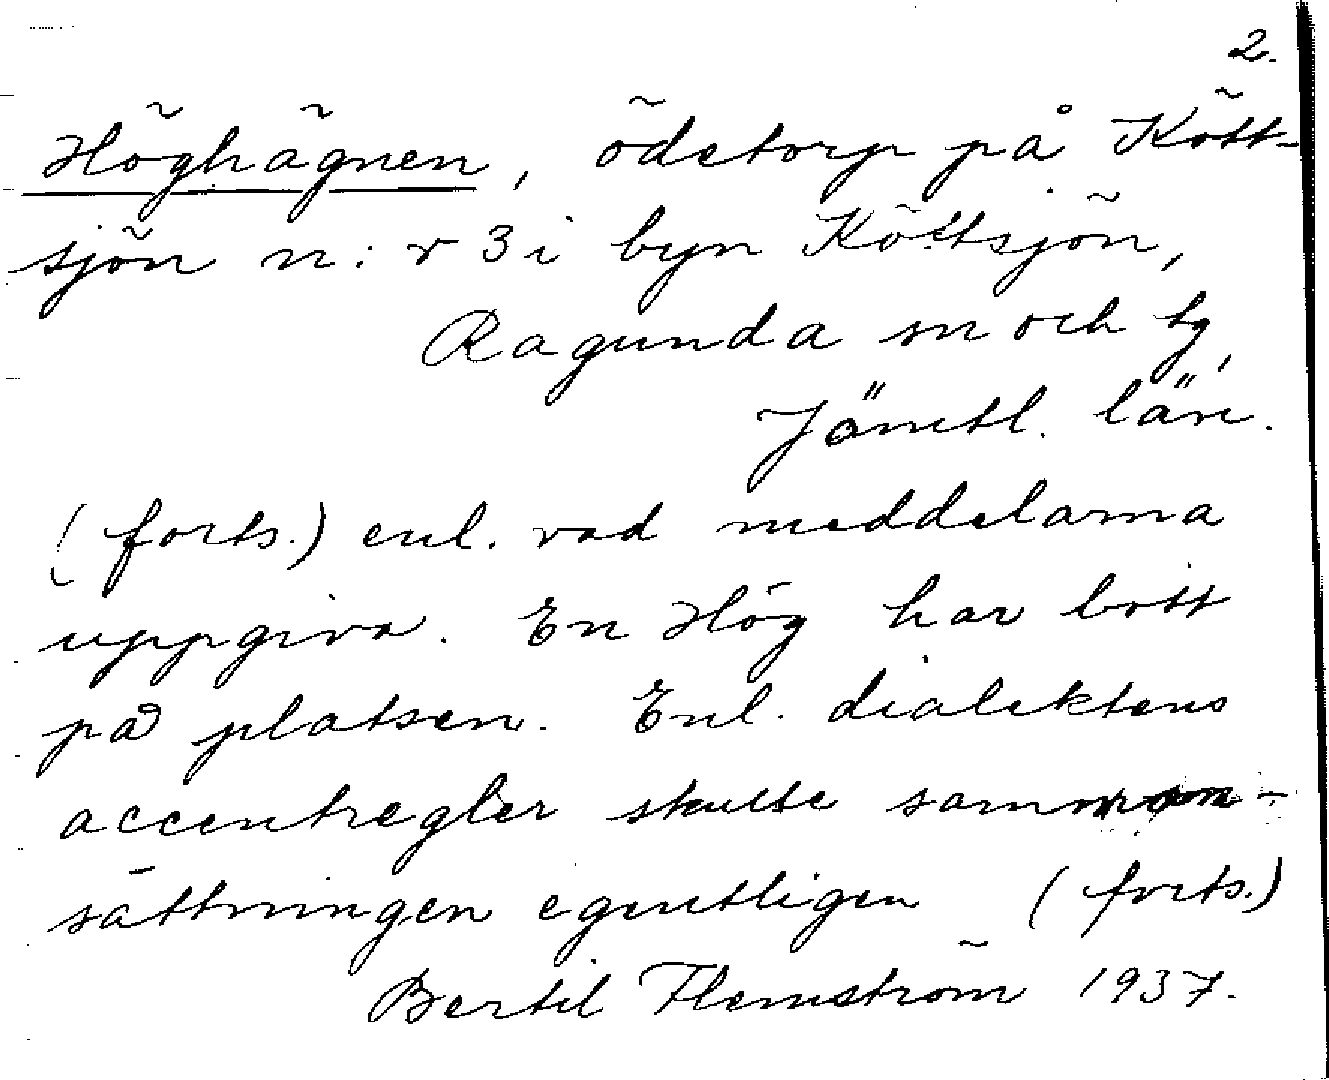 2.
Höghägnen, ödetorp på Kött-
sjön n:r 3 i byn Köttsjön,
Ragunda sn och tg,
Jämtl. län.
(forts.) enl. vad meddelarna
uppgiva. En Hög har bott
på platsen. Enl. dialektens
accentregler skulle samman-
sättningen egentligen (forts.)
Bertil Flemström 1937.